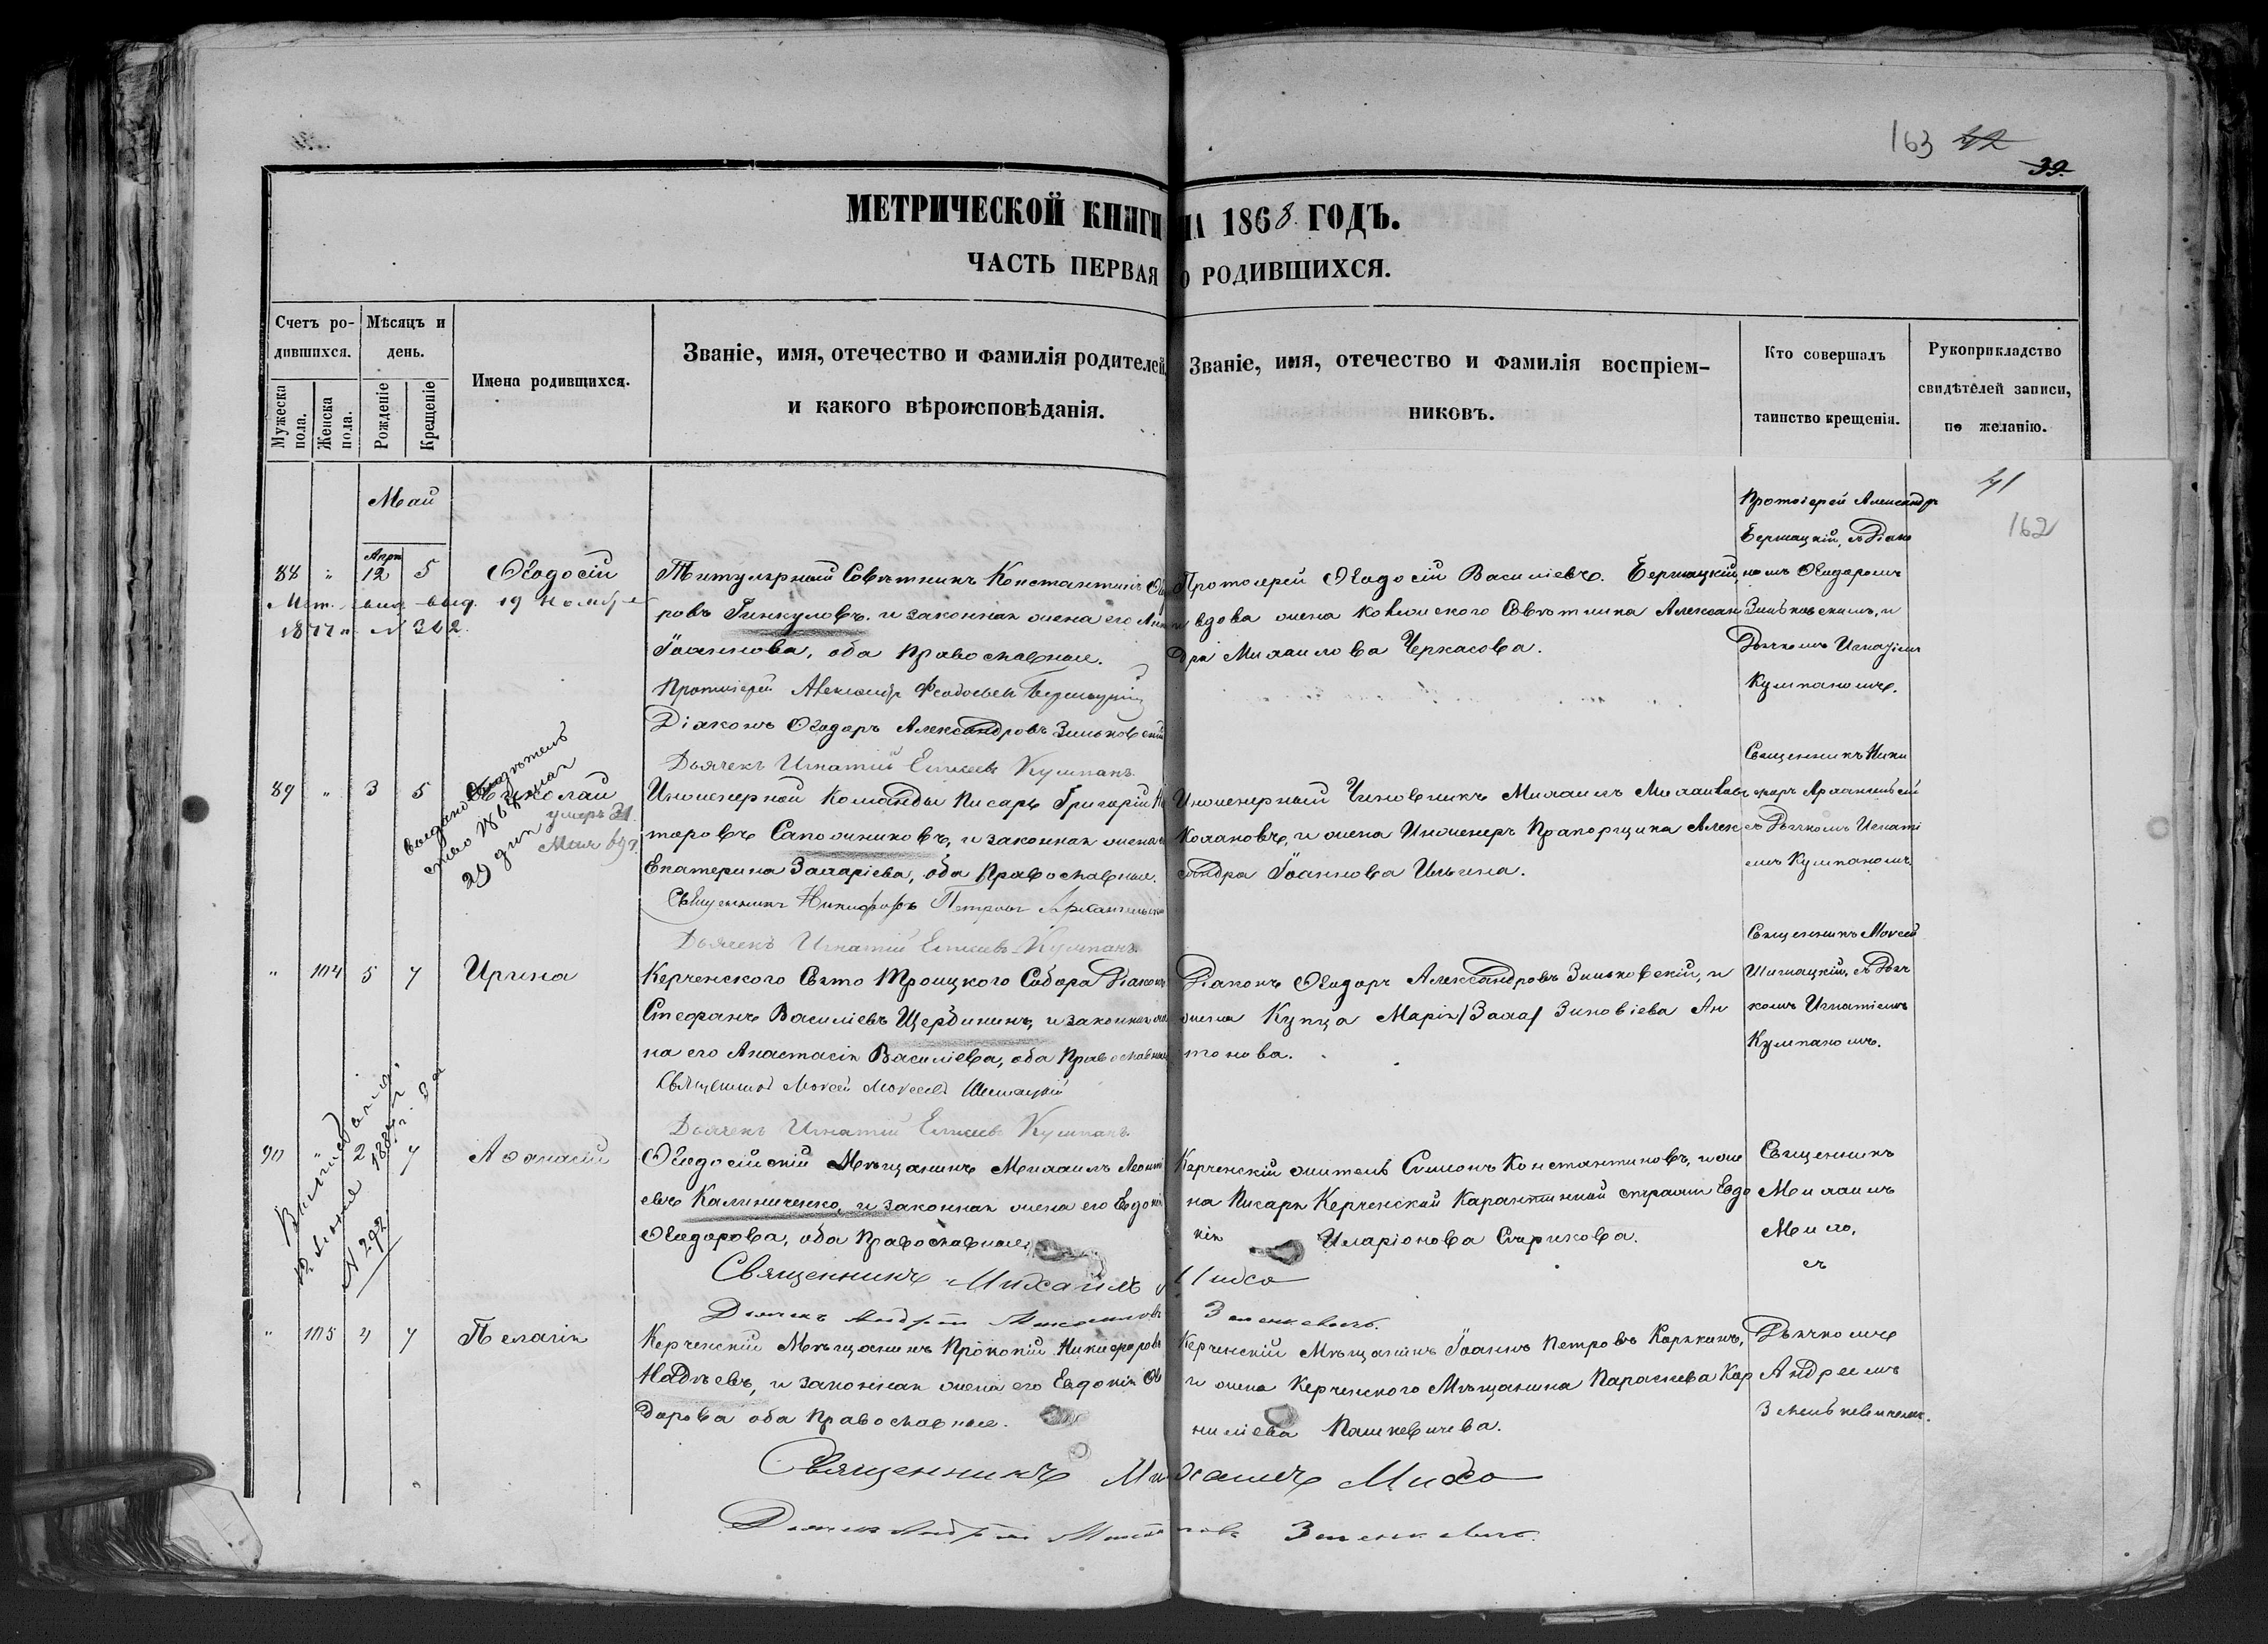 163 42
39.
МЕТРИЧЕСКОЙ КНИГИ НА 1868 ГОДЪ.
ЧАСТЬ ПЕРВАЯ О РОДИВШИХСЯ.
Счетъ ро-
дившихся.
Мужеска пола.
Женска пола.
Мѣсяцъ и
день.
Рожденіе
Крещеніе
Имена родившихся.
Званіе, имя, отечество и фамилія родителей,
и какого вѣроисповѣданія.
Званіе, имя, отечество и фамилія воспріем-
никовъ.
Кто совершалъ
таинство крещенія.
Рукоприкладство
свидѣтелей записи,
по желанію.
41
162
Май
Апрѣ
88 " 12 5 Ѳеодосій
Мет. выд. 19 Ноября
1877 г. N 362.
Титулярный Совѣтникъ Константинъ Ѳео
ровъ Гинкуловъ. и законная жена его Анна
Іоаннова, оба Православные.
Протоіерей Александръ Ѳеодосіевъ Бершацкій
Діаконъ Ѳеодоръ Александровъ Зиньковскій
Дьячекъ Игнатій Елисеевъ Кулпанъ.
Протоіерей Ѳеодосій Василіевъ. Бершацкій,
и вдова жена Совѣтника Алексан
дра Михаилова Черкасова.
Протоіерей Александръ
Бершацкій, съ Діако
номъ Ѳеодоромъ
Зиньковскимъ, и
Дьячкомъ Игнатіемъ
Кулпаномъ.
89 " 3 5 Николай
умеръ 31
Мая 69 г.
Выдано свидѣтель
ство 1878 года
29 дня
Инженерной Команды Писарь Григорій Ни
торовъ Сапожниковъ, и законная жена его
Екатерина Захаріева, оба Православные.
Священникъ Никифоръ Петровъ Архангельскій
Дьячекъ Игнатій Елисеевъ Кулпанъ.
Инженерный Чиновникъ Михаилъ Михаиловъ
Колановъ, и жена Инженеръ Прапорщика Алек
сандра Іоаннова Ильина.
Священникъ Ники
форъ Архангельскій
съ Дьячкомъ Игнаті
емъ Кулпаномъ.
" 104 5 7 Ирина
Керченского Свято Троицкого Собора Діаконъ
Стефанъ Василіевъ Щербининъ, и законная же
на его Анастасія Василіева, оба Православные
Священникъ Моисей Моисеевъ Шишацкій
Дьячекъ Игнатій Елисеевъ Кулпанъ.
Діаконъ Ѳеодоръ Александровъ Зиньковскій, и
жена Купца Марія Зиновіева Ан
тонова.
Священникъ Моисей
Шишацкій, съ Дья
комъ Игнатіемъ
Кулпаномъ.
90 " 2 7 Аѳанасій
Выпись дана
12 Июня 1884 г. За
N 292
Ѳеодосійскій Мѣщанинъ Михаилъ Леонті
евъ Калиниченко, и законная жена его Евдокія
Ѳеодорова, оба Православные.
Священникъ Михаилъ Михо
Дьячекъ Андрей Зеленкевичъ.
Керченскій житель Симонъ Константиновъ, и же
на Писаря Керченской Карантинной стражи Евдо
кія Иларіонова Старикова.
Священникъ
Михаилъ
Михо,
съ
" 105 4 7 Пелагія
Керченскій Мѣщанинъ Прокопій Никифоровъ
Надѣевъ, и законная жена его Евдокія Ѳео
дорова оба Православные.
Священникъ Михаилъ Михо
Дьячекъ Андрей Зеленкевичъ.
Керченскій Мѣщанинъ Іоаннъ Петровъ Корякинъ,
и жена Керченского Мѣщанина Параскева Кор
ниліева Пашкевичева.
Дьячкомъ
Андреемъ
Зеленкевичемъ.